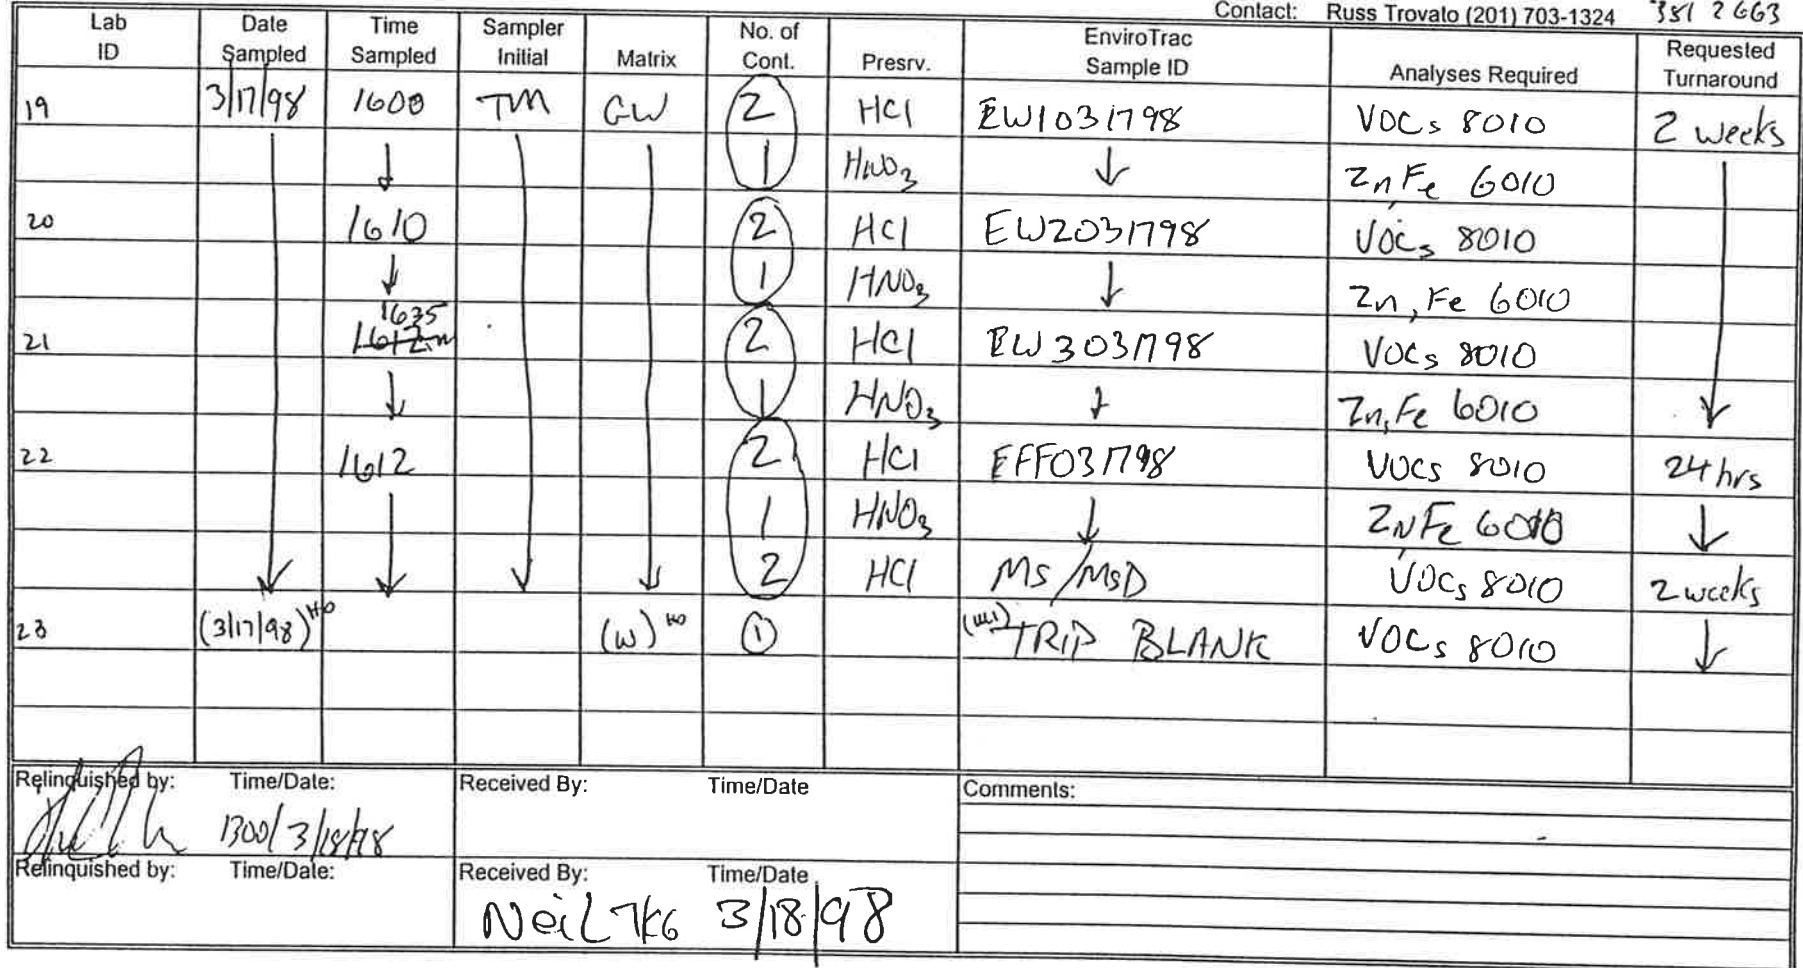 Contact: Russ Trovato (201) 703-1324 351 2663
Lab ID Date Sampled Time Sampled Sampler Initial Matrix No. of Cont. Presrv. EnviroTrac Sample ID Analyses Required Requested Turnaround
19 3/17/98 1600 TM GW 2 HCl EW1031798 VOCs 8010 2 weeks
↓ 1 HNO3 ↓ Zn, Fe 6010
20 1610 2 HCl EW2031798 VOCs 8010
↓ 1 HNO3 ↓ Zn, Fe 6010
1635
21 1612 2 HCl EW3031798 VOCs 8010
↓ 1 HNO3 ↓ Zn, Fe 6010 ↓
22 1612 2 HCl EFF031798 VOCs 8010 24 hrs
1 HNO3 ↓ ZN, Fe 6010 ↓
↓ ↓ ↓ ↓ 2 HCl MS/MSD VOCs 8010 2 weeks
23 (3/17/98) (W) 1 TRIP BLANK VOCs 8010 ↓
Relinquished by: Time/Date: Received By: Time/Date Comments:
1300/3/18/98
Relinquished by: Time/Date: Received By: Time/Date
Neil 3/18/98